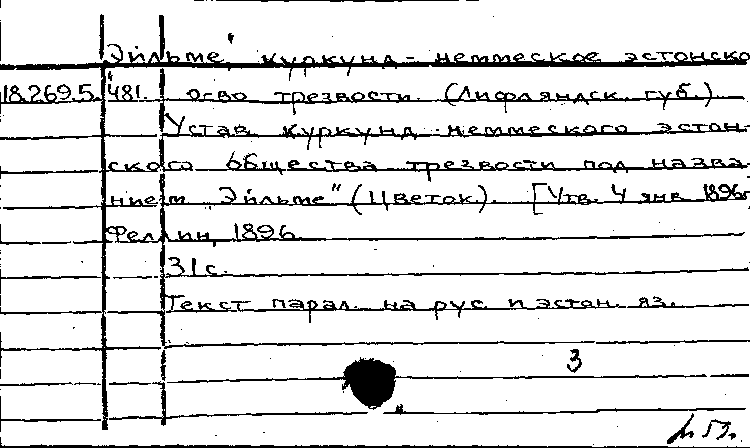 „Эйльме", куркунд-неммеское эстонско
18.269.5.481. о-во трезвости. (Лифляндск. губ.)
Устав куркунд-неммеского эстон-
ского общества трезвости под назва-
нием „Эйльме" (Цветок). [Утв. 4 янв. 1896
Феллин, 1896.
31с.
Текст парал. на рус. и эстон. яз.
3